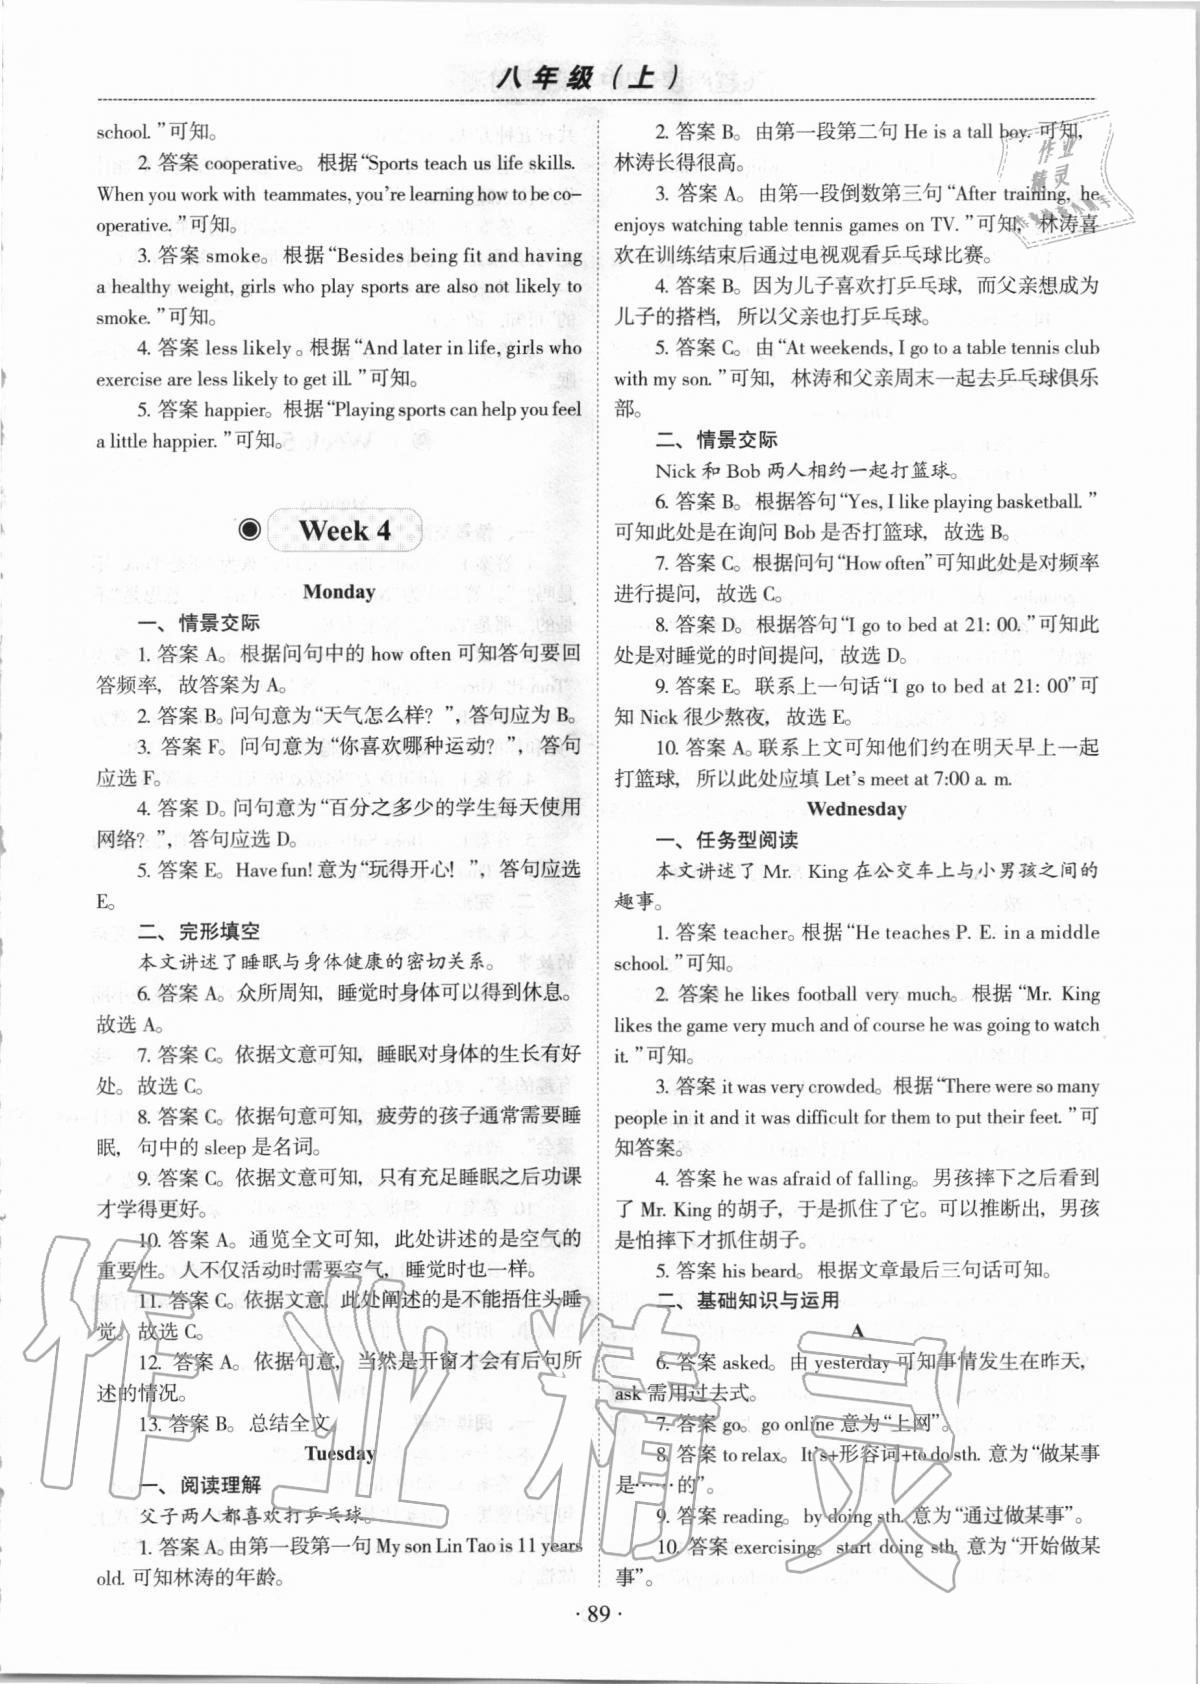 八年级（上）
school.”可知。
2. 答案 cooperative。根据“Sports teach us life skills.
When you work with teammates, you're learning how to be co-
operative.”可知。
3. 答案 smoke。根据“Besides being fit and having
a healthy weight, girls who play sports are also not likely to
smoke.”可知。
4. 答案 less likely。根据“And later in life, girls who
exercise are less likely to get ill.”可知。
5. 答案 happier。根据“Playing sports can help you feel
a little happier.”可知。
Week 4
Monday
一、情景交际
1. 答案 A。根据问句中的 how often 可知答句要回
答频率，故答案为 A。
2. 答案 B。问句意为“天气怎么样？”，答句应为 B。
3. 答案 F。问句意为“你喜欢哪种运动？”，答句
应选 F。
4. 答案 D。问句意为“百分之多少的学生每天使用
网络？”，答句应选 D。
5. 答案 E。Have fun! 意为“玩得开心！”，答句应选
E。
二、完形填空
本文讲述了睡眠与身体健康的密切关系。
6. 答案 A。众所周知，睡觉时身体可以得到休息。
故选 A。
7. 答案 C。依据文意可知，睡眠对身体的生长有好
处。故选 C。
8. 答案 C。依据句意可知，疲劳的孩子通常需要睡
眠，句中的 sleep 是名词。
9. 答案 C。依据文意可知，只有充足睡眠之后功课
才学得更好。
10. 答案 A。通览全文可知，此处讲述的是空气的
重要性。人不仅活动时需要空气，睡觉时也一样。
11. 答案 C。依据文意，此处阐述的是不能捂住头睡
觉。故选 C。
12. 答案 A。依据句意，当然是开窗才会有后句所
述的情况。
13. 答案 B。总结全文。
Tuesday
一、阅读理解
父子两人都喜欢打乒乓球。
1. 答案 A。由第一段第一句 My son Lin Tao is 11 years
old. 可知林涛的年龄。
2. 答案 B。由第一段第二句 He is a tall boy. 可知，
林涛长得很高。
3. 答案 A。由第一段倒数第三句“After training, he
enjoys watching table tennis games on TV.”可知，林涛喜
欢在训练结束后通过电视观看乒乓球比赛。
4. 答案 B。因为儿子喜欢打乒乓球，而父亲想成为
儿子的搭档，所以父亲也打乒乓球。
5. 答案 C。由“At weekends, I go to a table tennis club
with my son.”可知，林涛和父亲周末一起去乒乓球俱乐
部。
二、情景交际
Nick 和 Bob 两人相约一起打篮球。
6. 答案 B。根据答句“Yes, I like playing basketball.”
可知此处是在询问 Bob 是否打篮球，故选 B。
7. 答案 C。根据问句“How often”可知此处是对频率
进行提问，故选 C。
8. 答案 D。根据答句“I go to bed at 21: 00.”可知此
处是对睡觉的时间提问，故选 D。
9. 答案 E。联系上一句话“I go to bed at 21: 00”可
知 Nick 很少熬夜，故选 E。
10. 答案 A。联系上文可知他们约在明天早上一起
打篮球，所以此处应填 Let's meet at 7:00 a. m.
Wednesday
一、任务型阅读
本文讲述了 Mr. King 在公交车上与小男孩之间的
趣事。
1. 答案 teacher。根据“He teaches P. E. in a middle
school.”可知。
2. 答案 he likes football very much。根据“Mr. King
likes the game very much and of course he was going to watch
it.”可知。
3. 答案 it was very crowded。根据“There were so many
people in it and it was difficult for them to put their feet.”可
知答案。
4. 答案 he was afraid of falling。男孩摔下之后看到
了 Mr. King 的胡子，于是抓住了它。可以推断出，男孩
是怕摔下才抓住胡子。
5. 答案 his beard。根据文章最后三句话可知。
二、基础知识与运用
A
6. 答案 asked。由 yesterday 可知事情发生在昨天，
ask 需用过去式。
7. 答案 go。go online 意为“上网”。
8. 答案 to relax。It's+形容词+to do sth. 意为“做某事
是……的”。
9. 答案 reading。by doing sth. 意为“通过做某事”。
10. 答案 exercising。start doing sth. 意为“开始做某
事”。
· 89 ·
作业精灵
作业
精灵